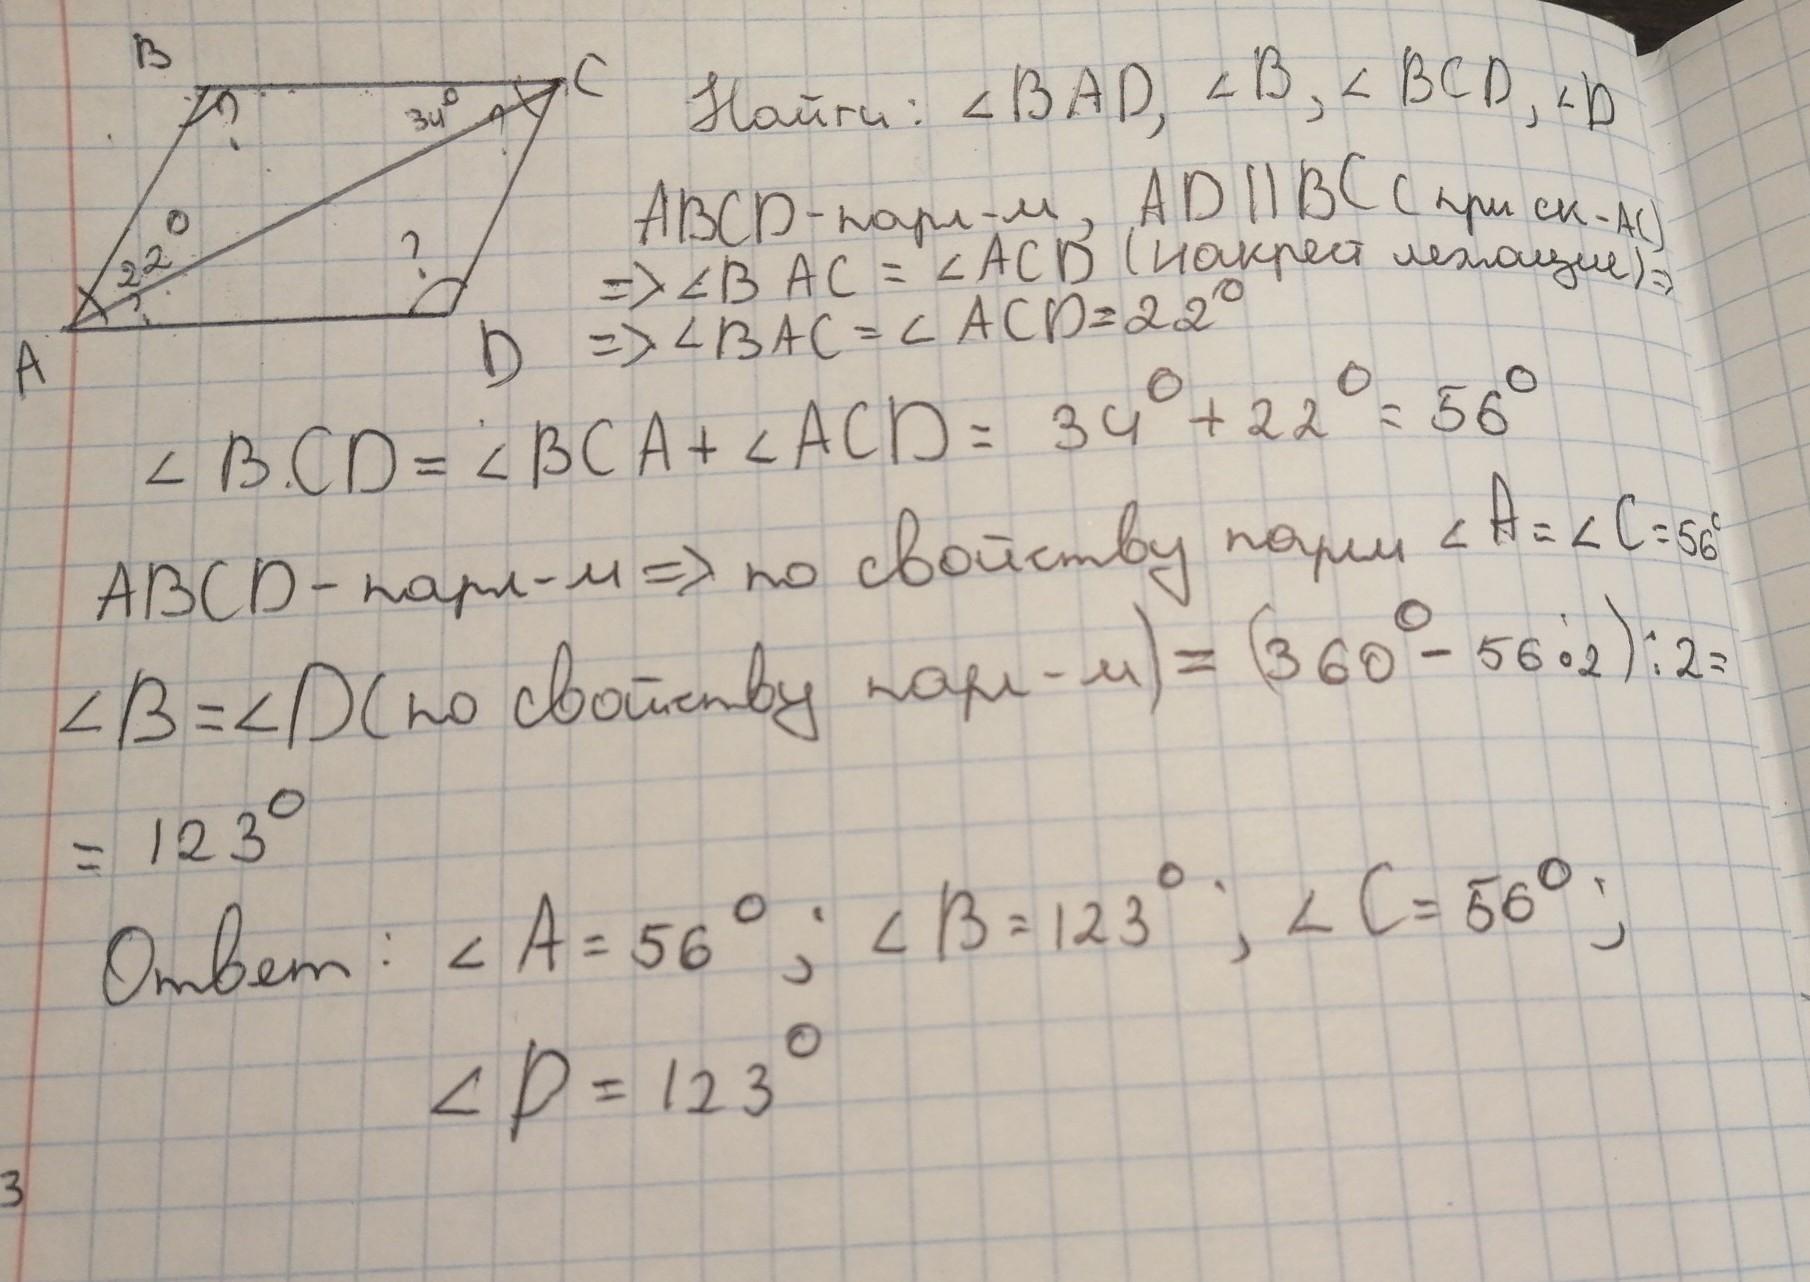 B
C
34°
?
?
22°
?
?
A
D
Найти: ∠BAD, ∠B, ∠BCD, ∠D
ABCD-парл-м, AD||BC (при ск-AC)
=> ∠BAC = ∠ACD (накрест лежащие) =>
=> ∠BAC = ∠ACD = 22°
∠B.CD = ∠BCA + ∠ACD = 34° + 22° = 56°
ABCD-парл-м => по свойству парлм ∠A = ∠C = 56°
∠B = ∠D (по свойству парл-м) = (360° - 56:2):2 =
= 123°
Ответ: ∠A = 56°; ∠B = 123°; ∠C = 56°;
∠D = 123°
3